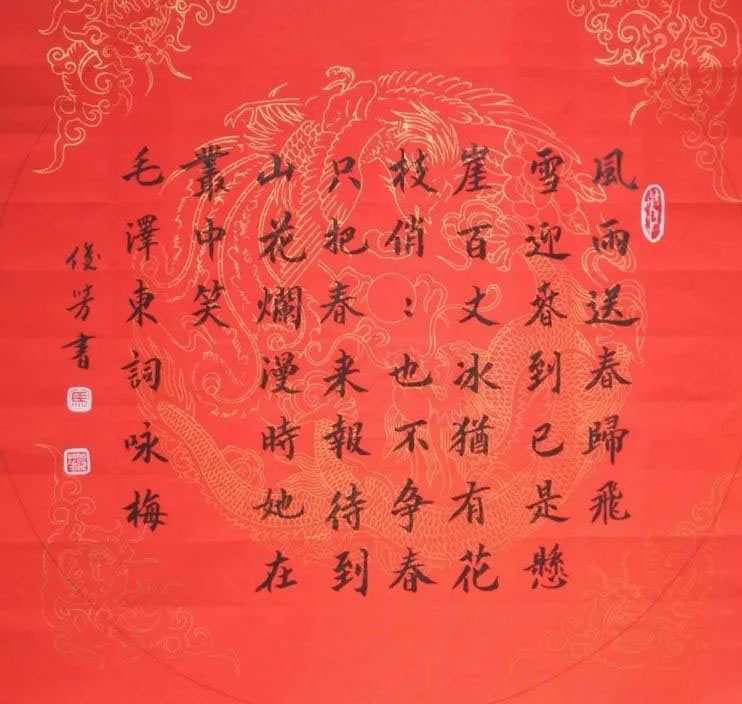 風雨送春歸飛
雪迎春到已是懸
崖百丈冰猶有花
枝俏：也不争春
只把春来報待到
山花爛漫時她在
叢中笑
毛澤東詞咏梅
俊芳書
馬